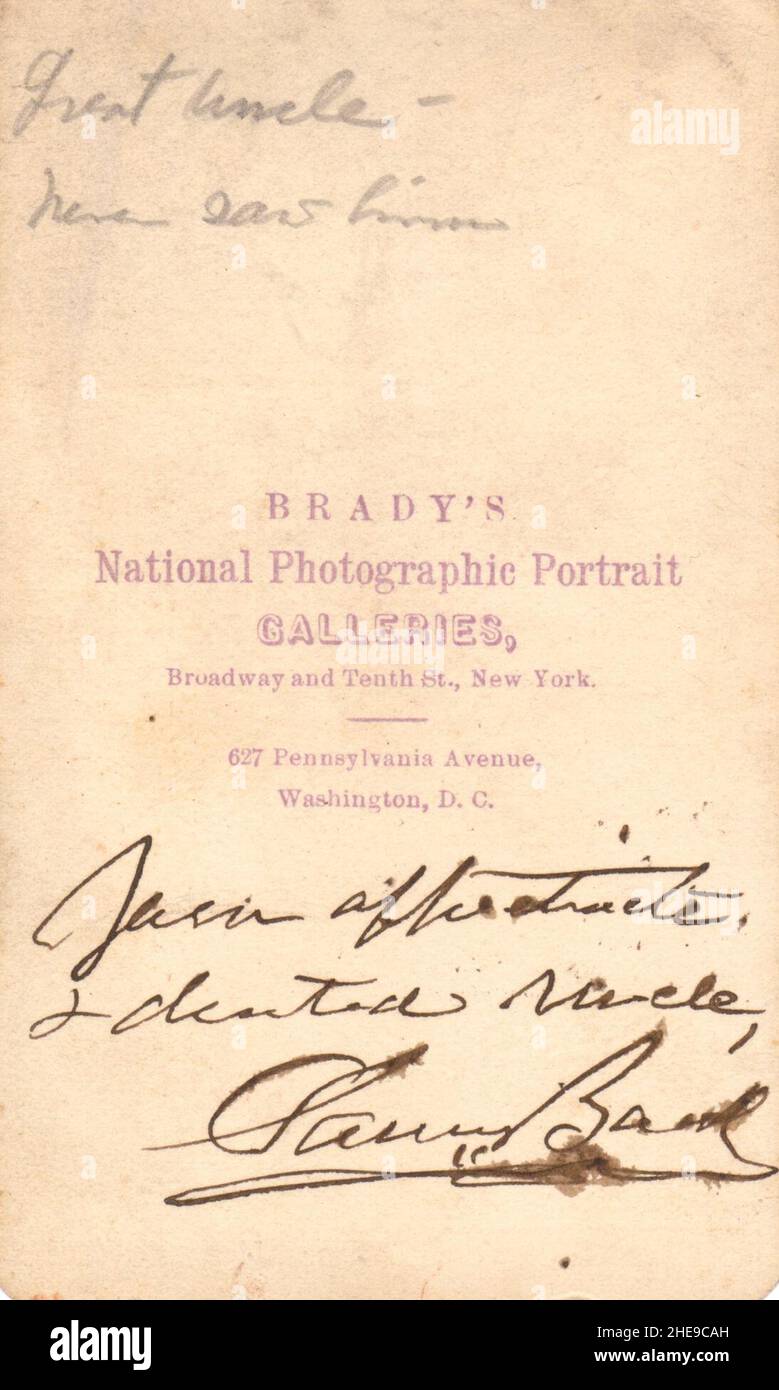 Great Uncle –
never saw him
BRADY'S
National Photographic Portrait
GALLERIES,
Broadway and Tenth St., New York.
627 Pennsylvania Avenue,
Washington, D. C.
Your affectionate
& devoted Uncle,
alamy
Image ID: 2HE9CAH
www.alamy.com